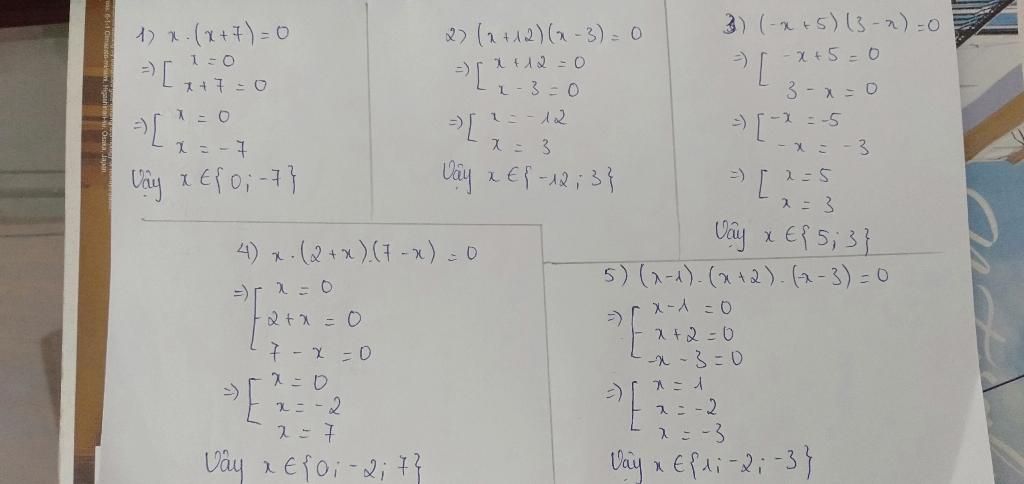 1) x.(x+7)=0
=> [ x = 0
x+7 = 0
=> [ x = 0
x = -7
Vậy x ∈ {0; -7}
2) (x+12)(x-3) = 0
=> [ x+12 = 0
x - 3 = 0
=> [ x = -12
x = 3
Vậy x ∈ {-12; 3}
3) (-x+5)(3-x)=0
=> [ -x+5 = 0
3 - x = 0
=> [ -x = -5
-x = -3
=> [ x = 5
x = 3
Vậy x ∈ {5; 3}
4) x.(2+x).(7-x) = 0
=> [ x = 0
2+x = 0
7 - x = 0
=> [ x = 0
x = -2
x = 7
Vậy x ∈ {0; -2; 7}
5) (x-1).(x+2).(-x-3)=0
=> [ x-1 = 0
x+2 = 0
-x - 3 = 0
=> [ x = 1
x = -2
x = -3
Vậy x ∈ {1; -2; -3}